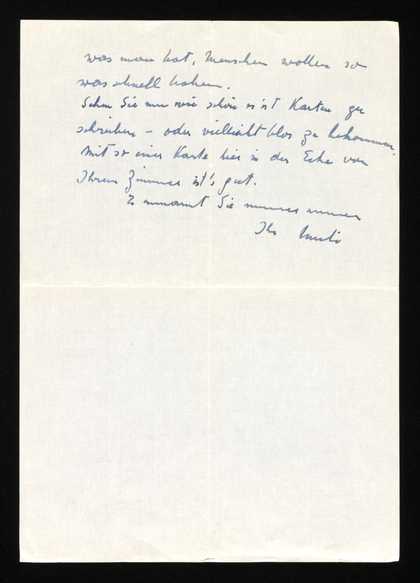 was man hat, Menschen wollen so
was schnell haben.
Sehn Sie nur wie schön es ist Karten zu
schreiben – oder vielleicht blos zu bekommen.
Mit so einer Karte hier in der Ecke von
Ihrem Zimmer ist's gut.
Es umarmt Sie
Ihr